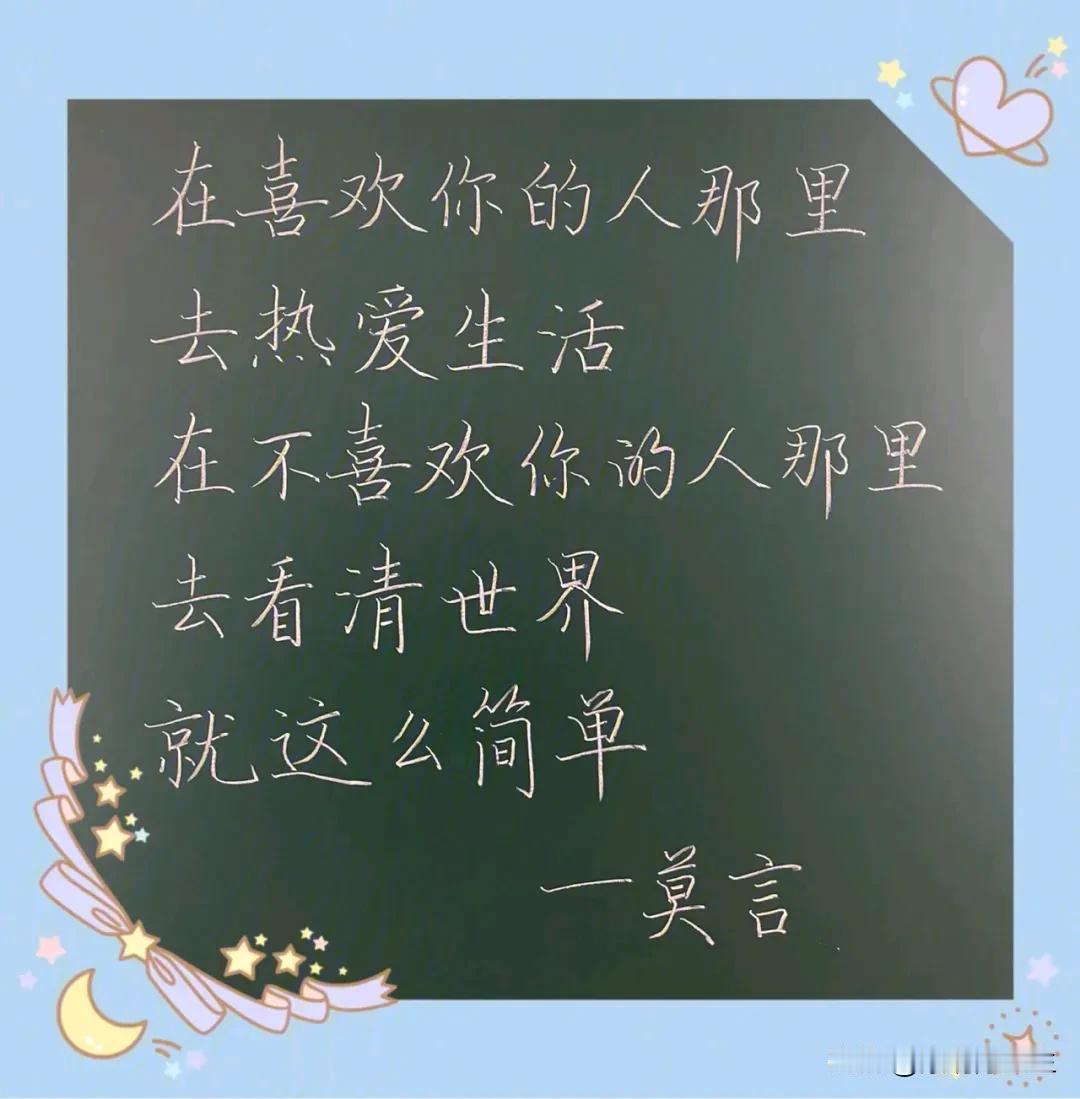 在喜欢你的人那里
去热爱生活
在不喜欢你的人那里
去看清世界
就这么简单
一莫言